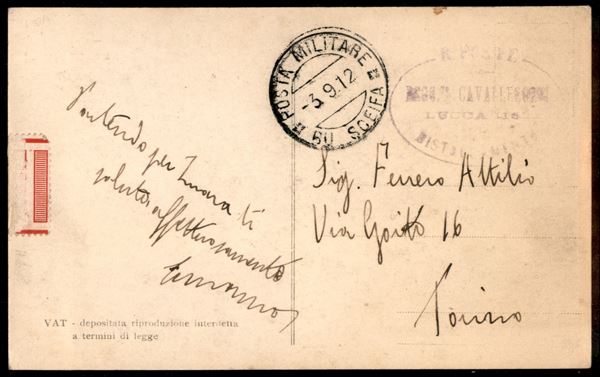 POSTA MILITARE
-3.9.12
BU SCEIFA
R. POSTE
REGG.TO CAVALLEGGERI
LUCCA (16°)
DISTACCAMENTO
Partendo per Zuara ti
saluta affettuosamente
Sig. Ferrero Attilio
Via Goito 16
Torino
VAT - depositata riproduzione interdetta
a termini di legge